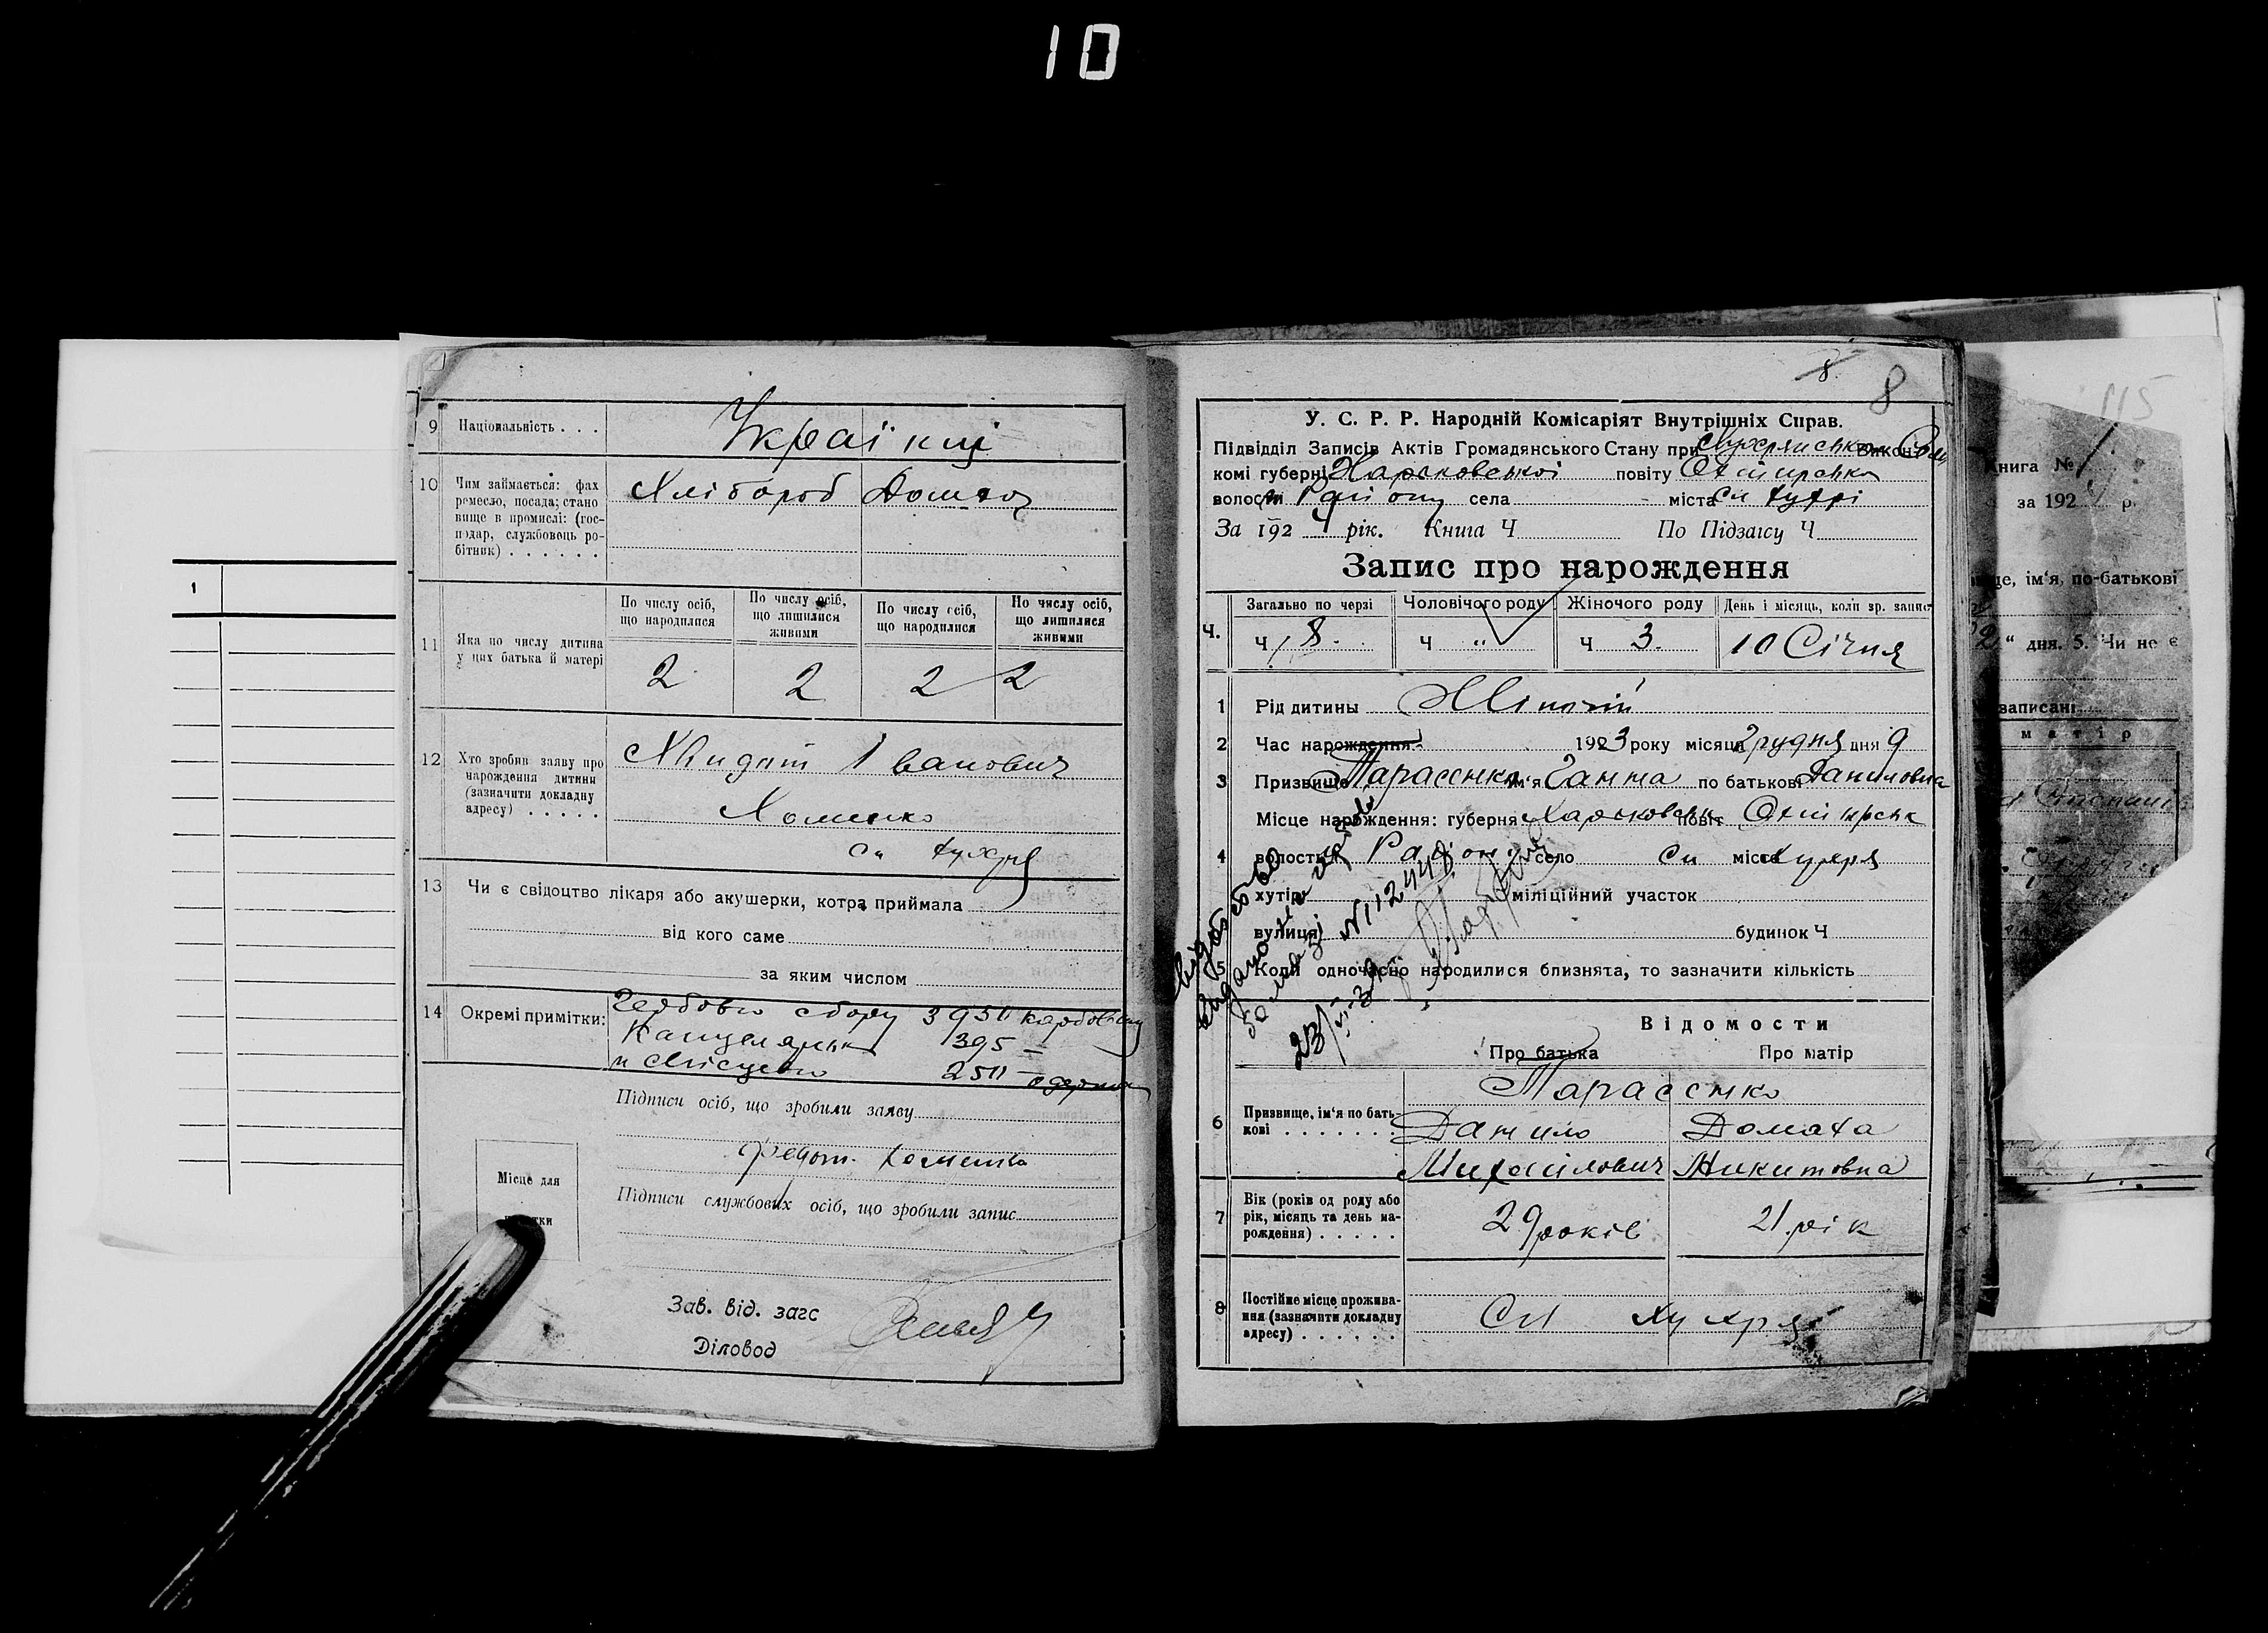 10
9 Національність . . .
Українці
10 Чим займається: фах
ремесло, посада; стано
вище в промислі: (гос-
подар, службовець ро-
бітник) . . . . . .
Хлібороб
11 Яка по числу дитина
у цих батька й матері
По числу осіб,
що народилися
По числу осіб,
що лишилися
живими
По числу осіб,
що народилися
По числу осіб,
що лишилися
живими
2 2 2 2
12 Хто зробив заяву про
нарождення дитини
(зазначити докладну
адресу) . . . . .
Іванович
Хоменко
сл Хухря
13 Чи є свідоцтво лікаря або акушерки, котра приймала
від кого саме
за яким числом
14 Окремі примітки:
Гербово збору 3950 карбованц
395 —
250 —
Підписи осіб, що зробили заяву
Хоменко
Місце для
Підписи службових осіб, що зробили запис
Зав. від. загс
Діловод
1
8
8
У. С. Р. Р. Народній Комісаріят Внутрішніх Справ.
Підвідділ Записів Актів Громадянського Стану при Хухрянсько Викон
комі губерні Харьковської повіту Охтирсько
волости Району села міста сл Хухрі
За 1924 рік. Книга Ч По Підзагсу Ч
Запис про нарождення
Ч.
Загально по черзі
Чоловічого роду
Жіночого роду
День і місяць, коли зр. запис
Ч 8. Ч „ Ч 3. 10 Січня
1 Рід дитины Жіночій
2 Час нарождення: 1923 року місяця Грудня дня 9
3 Призвище Тарасенко ім'я Ганна по батькові Даниловна
Місце нарождення: губерня Харьковськ повіт Охтирськ
4 волость Район село сл місто Хухря
хутір міліційний участок
вулиця будинок Ч
5 Коли одночасно народилися близнята, то зазначити кількість
№112448
Відомости
Про батька Про матір
6 Призвище, ім'я по бать-
кові . . . . . . .
Тарасенко
Данило Домаха
Михайлович Никитовна
7 Вік (років од роду або
рік, місяць та день на-
рождення) . . . . .
29 років 21 рік
8 Постійне місце прожива-
ння (зазначити докладну
адресу) . . . . . .
Сл Хухря
115
Книга № 1
за 192 р.
ім'я, по-батькові
“ дня. 5. Чи не є
записані
матір